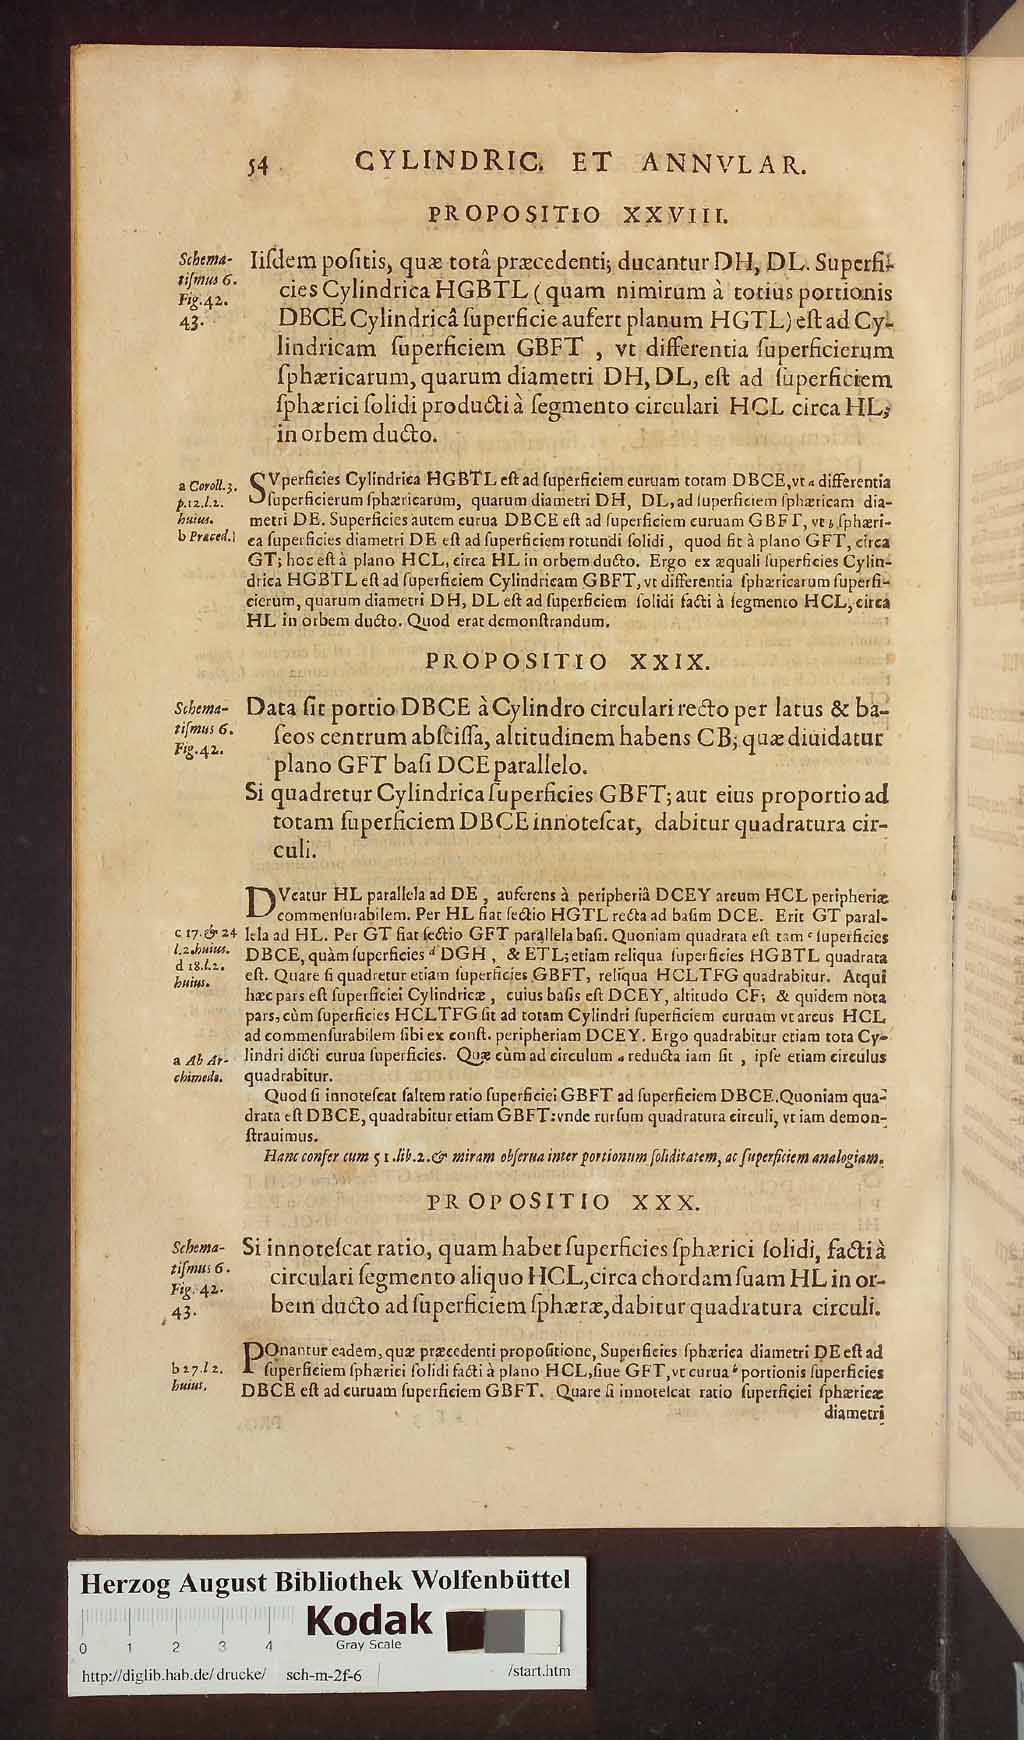 54 CYLINDRIC. ET ANNVLAR.
PROPOSITIO XXVIII.
Schema-
tiſmus 6.
Fig. 42.
43.
Iiſdem poſitis, quæ totâ præcedenti; ducantur DH, DL. Superfi-
cies Cylindrica HGBTL (quam nimirum à totius portionis
DBCE Cylindricâ ſuperficie aufert planum HGTL) eſt ad Cy-
lindricam ſuperficiem GBFT , vt differentia ſuperficierum
ſphæricarum, quarum diametri DH, DL, eſt ad ſuperficiem
ſphærici ſolidi producti à ſegmento circulari HCL circa HL,
in orbem ducto.
a Coroll.3.
p.12.l.2.
huius.
b Præced.
SVperficies Cylindrica HGBTL eſt ad ſuperficiem curuam totam DBCE, vt a differentia
ſuperficierum ſphæricarum, quarum diametri DH, DL, ad ſuperficiem ſphæricam dia-
metri DE. Superficies autem curua DBCE eſt ad ſuperficiem curuam GBFT, vt b ſphæri-
ca ſuperficies diametri DE eſt ad ſuperficiem rotundi ſolidi, quod fit à plano GFT, circa
GT; hoc eſt à plano HCL, circa HL in orbem ducto. Ergo ex æquali ſuperficies Cylin-
drica HGBTL eſt ad ſuperficiem Cylindricam GBFT, vt differentia ſphæricarum ſuperfi-
cierum, quarum diametri DH, DL eſt ad ſuperficiem ſolidi facti à ſegmento HCL, circa
HL in orbem ducto. Quod erat demonſtrandum.
PROPOSITIO XXIX.
Schema-
tiſmus 6.
Fig.42.
Data ſit portio DBCE à Cylindro circulari recto per latus & ba-
ſeos centrum abſciſſa, altitudinem habens CB; quæ diuidatur
plano GFT baſi DCE parallelo.
Si quadretur Cylindrica ſuperficies GBFT; aut eius proportio ad
totam ſuperficiem DBCE innoteſcat, dabitur quadratura cir-
culi.
c 17. & 24
l.2.huius.
d 18.l.2.
huius.
a Ab Ar-
chimede.
DVcatur HL parallela ad DE , auferens à peripheriâ DCEY arcum HCL peripheriæ
commenſurabilem. Per HL fiat ſectio HGTL recta ad baſim DCE. Erit GT paral-
lela ad HL. Per GT fiat ſectio GFT parallela baſi. Quoniam quadrata eſt tam c ſuperficies
DBCE, quàm ſuperficies d DGH , & ETL; etiam reliqua ſuperficies HGBTL quadrata
eſt. Quare ſi quadretur etiam ſuperficies GBFT, reliqua HCLTFG quadrabitur. Atqui
hæc pars eſt ſuperficiei Cylindricæ , cuius baſis eſt DCEY, altitudo CF; & quidem nota
pars, cùm ſuperficies HCLTFG ſit ad totam Cylindri ſuperficiem curuam vt arcus HCL
ad commenſurabilem ſibi ex conſt. peripheriam DCEY. Ergo quadrabitur etiam tota Cy-
lindri dicti curua ſuperficies. Quæ cùm ad circulum a reducta iam ſit , ipſe etiam circulus
quadrabitur.
Quod ſi innoteſcat ſaltem ratio ſuperficiei GBFT ad ſuperficiem DBCE. Quoniam qua-
drata eſt DBCE, quadrabitur etiam GBFT: vnde rurſum quadratura circuli, vt iam demon-
ſtrauimus.
Hanc confer cum 51.lib.2. & miram obſerua inter portionum ſoliditatem, ac ſuperficiem analogiam.
PROPOSITIO XXX.
Schema-
tiſmus 6.
Fig. 42.
43.
Si innoteſcat ratio, quam habet ſuperficies ſphærici ſolidi, facti à
circulari ſegmento aliquo HCL, circa chordam ſuam HL in or-
bem ducto ad ſuperficiem ſphæræ, dabitur quadratura circuli.
b 27.l 2.
huius.
POnantur eadem, quæ præcedenti propoſitione, Superficies ſphærica diametri DE eſt ad
ſuperficiem ſphærici ſolidi facti à plano HCL, ſiue GFT, vt curua b portionis ſuperficies
DBCE eſt ad curuam ſuperficiem GBFT. Quare ſi innoteſcat ratio ſuperficiei ſphæricæ
diametri
Herzog August Bibliothek Wolfenbüttel
Kodak
Gray Scale
0 1 2 3 4
http://diglib.hab.de/drucke/ sch-m-2f-6 /start.htm